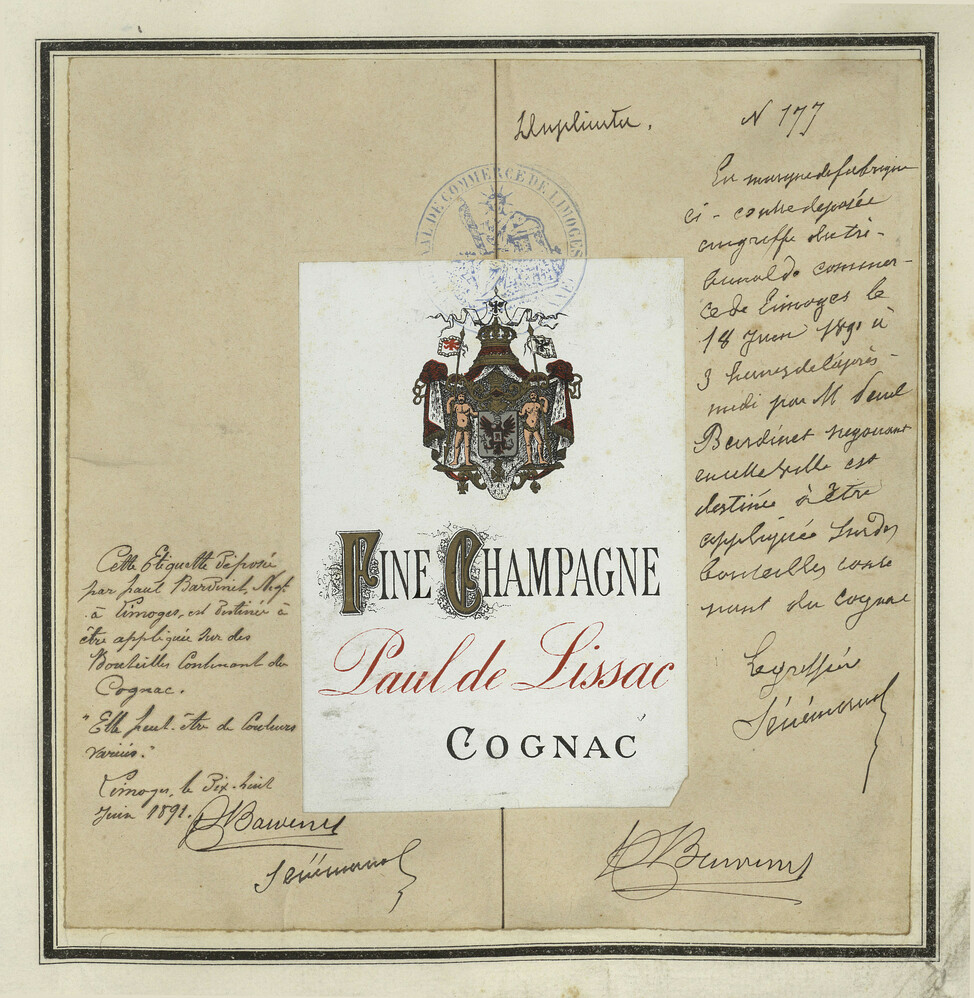 Duplicata.
N 177
La marque de fabrique
ci-contre déposée
au greffe du tri-
bunal de commer-
ce de Limoges le
18 Juin 1891 à
3 heures de l'après-
midi par M Paul
Bardinet négociant
en cette ville est
destinée à être
appliquée sur des
bouteilles conte
nant du cognac
Le greffier
TRIBUNAL DE COMMERCE DE LIMOGES
FINE CHAMPAGNE
Paul de Lissac
COGNAC
Cette Etiquette déposée
par Paul Bardinet, Négt.
à Limoges, est destinée à
être appliquée sur des
Bouteilles Contenant du
Cognac.
"Elle peut-être de Couleurs
variées."
Limoges, le Dix-huit
Juin 1891.
PBardinet
PBardinet